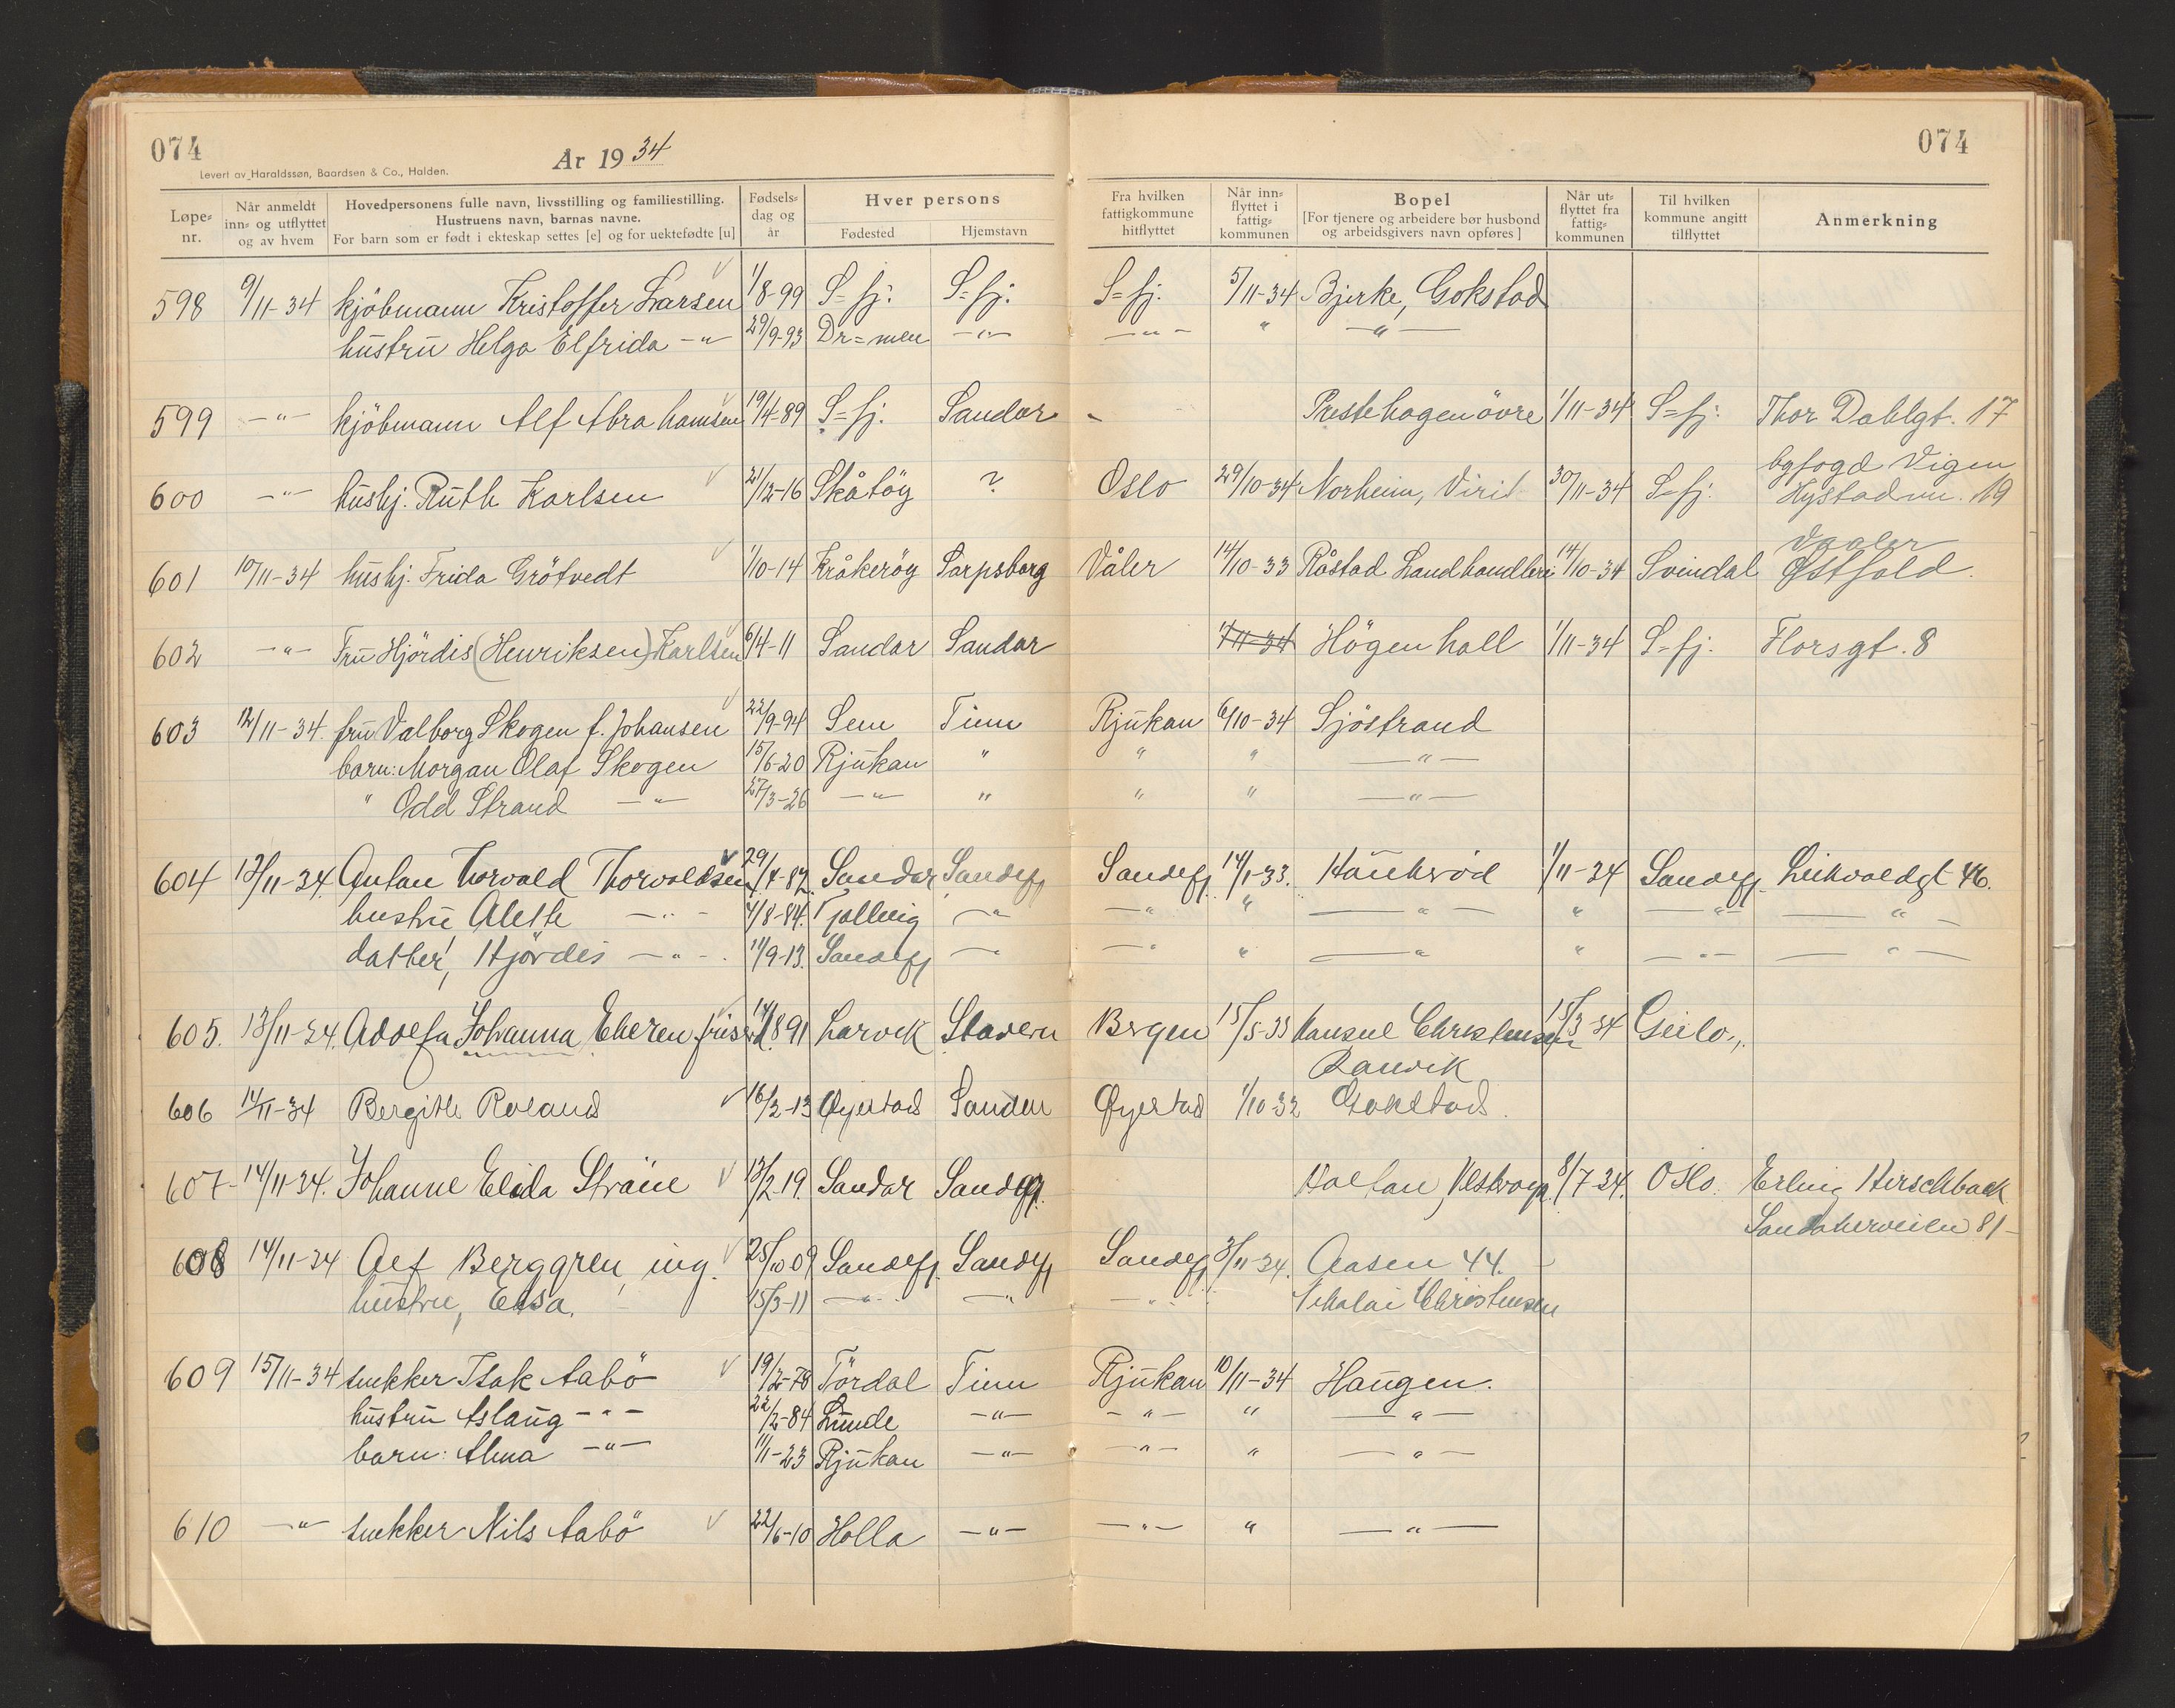 074
Levert av Haraldssøn, Baardsen & Co., Halden.
Ar 1934
074
Løpe-nr.
Når anmeldt inn- og utflyttet og av hvem
Hovedpersonens fulle navn, livsstilling og familiestilling.
Hustruens navn, barnas navne.
For barn som er født i ekteskap settes [e] og for uektefødte [u]
Fødsels-dag og år
Hver persons
Fødested
Hjemstavn
Fra hvilken fattigkommune hitflyttet
Når inn-flyttet i fattig-kommunen
Bopel
[For tjenere og arbeidere bør husbond og arbeidsgivers navn opføres]
Når ut-flyttet fra fattig-kommunen
Til hvilken kommune angitt tilflyttet
Anmerkning
598 9/11-34 kjöbmann Kristoffer Larsen 1/8-99 S=fj: S=fj: S=fj. 5/11-34 Bjerke, Gokstad
hustru Helga Elfrida -"- 29/9-93 Dr=men -"- -"- " -"-
599 -"- kjöbmann Alf Abrahamsen 19/4-89 S=fj. Sandar - Prestehagen övre 1/11-34 S=fj: Thor Dahlgt. 17
600 -"- hushj. Ruth Karlsen 21/12-16 Skåtöy ? Oslo 29/10-34 Norheim, Virik 30/11-34 S=fj. byfogd Vigen
Hystadvn. 19
601 10/11-34 hushj. Frida Grötvedt 1/10-14 Kråkeröy Sarpsborg Våler 14/10-33 Råstad Landhandleri 14/10-34 Svindal Vaaler
Østfold.
602 -"- Fru Hjördis (Henriksen) Karlsen 6/4-11 Sandar Sandar 1/11-34 Högenhall 1/11-34 S=fj. Florsgt. 8
603 12/11-34 fru Valborg Skogen f. Johansen 22/9-94 Sem Tinn Rjukan 6/10-34 Sjöstrand
barn: Morgan Olaf Skogen 15/6-20 Rjukan " " " -"-
" Odd Strand -"- 27/3-26 -"- " " " -"-
604 13/11-34. Anton Thorvald Thorvaldsen 29/4-82. Sandar Sandefj Sandefj. 14/1-33. Haukerød 1/11-34 Sandefj. 46.
hustru Alette -"- 7/8-84. Tjølling -"- -"- " -"- " -"- -"-
datter, Hjördis -"- 11/9-13. Sandefj -"- -"- " -"- " -"- -"-
605. 13/11-34. Adolfa Johanna 14/8 91 Larvik Stavern Bergen 15/5-33 Konsul Christensen 15/3 34 Geilo.
Ranvik
606 14/11-34 Bergitte Roland 16/2-13 Øyestad Sandar Øyestad 1/10-32 Gokstad.
607- 14/11-34. Johanne Elida 13/2-19. Sandar Sandefj. Holtan, 8/7-34. Oslo. Erling Hirschback
81-
608 14/11-34 Alf Berggren, ing. 25/10 09 Sandefj. Sandefj Sandefj 3/11-34. Aasen 44.
hustru, Elsa. 15/3-11 -"- -"- -"- Nikolai Christensen
609 15/11-34 snekker Isak Aabö 19/2-78 Tördal Tinn Rjukan 10/11-34 Haugen.
hustru Aslaug -"- 22/2-84 Lunde -"- -"- " -"-
barn: Alma -"- 11/11-23 Rjukan -"- -"- " -"-
610 -"- snekker Nils Aabö 22/6-10 Holla -"- -"- " -"-